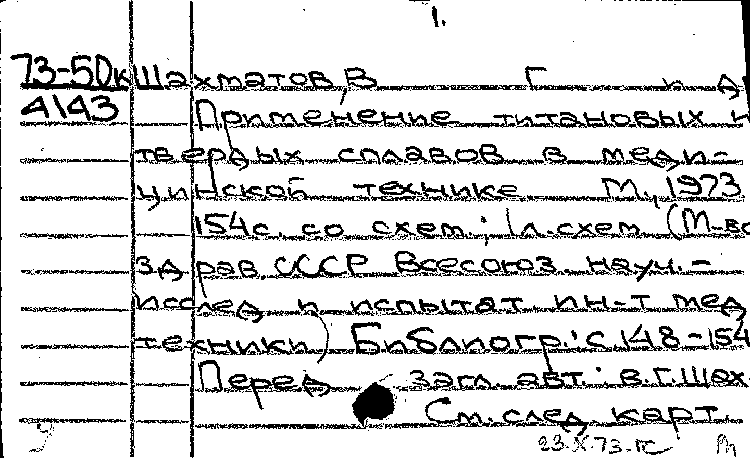 1.
73-50к Шахматов, В Г и д
4143 Применение титановых и
твердых сплавов в меди-
цинской технике М., 1973
154с. со схем.; 1 л. схем (М-во
здрав. СССР Всесоюз. науч.-
исслед и испытат. ин-т мед
техники) Библиогр.: с. 148-154
Перед загл. авт.: В.Г. Шах-
См. след. карт.
23.X.73.